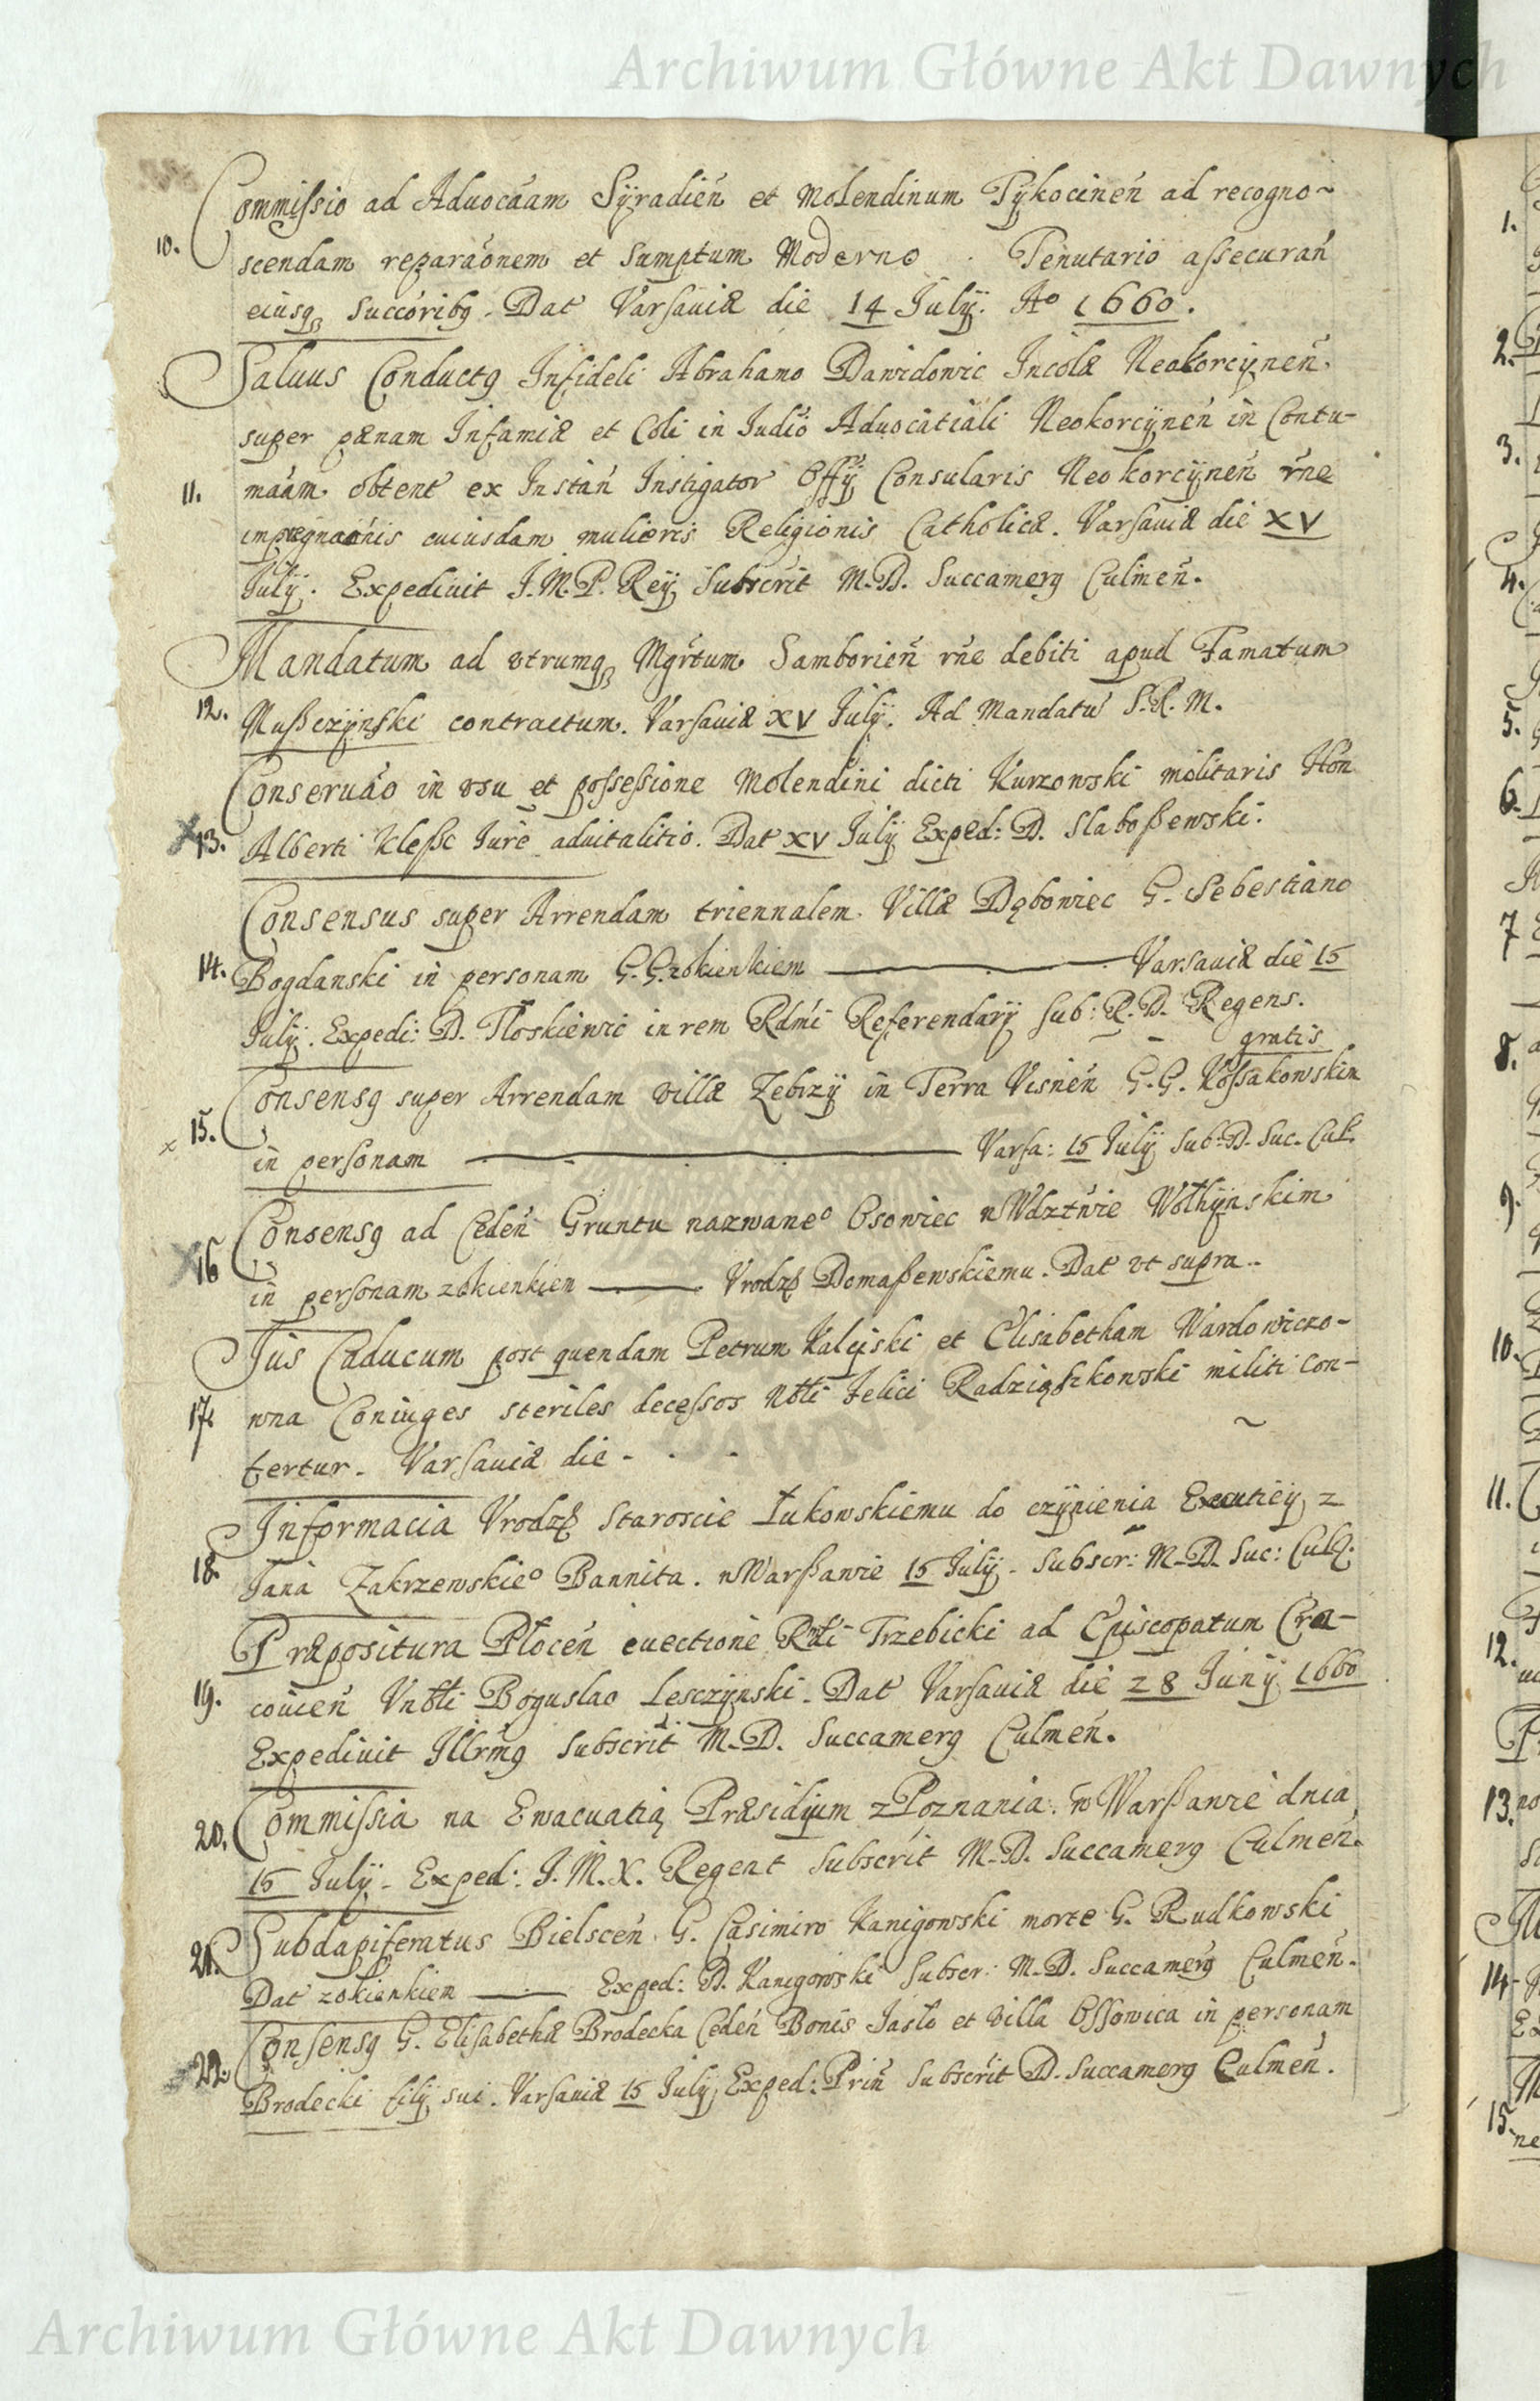 Archiwum Główne Akt Dawnych
10. Commissio ad Aduocaam Syradien et Molendinum Tykocinen ad recogno~
scendam reparaonem et Sumptum Moderno . Tenutario assecuran
eiusq succorib9. Dat Varsauiæ die 14 July. Ao 1660.
Saluus Conduct9 Infideli Abrahamo Dawidowic Incolæ Neokorcynen
super pænam Infamiæ et Coli in Iudio Aduocatiali Neokorcynen in Contu-
11. maam obtent ex Instan Instigator Offy Consularis Neokorcynen rne
impregnaonis cuiusdam mulieris Religionis Catholicæ. Varsauiæ die XV
July. Expediuit J.M.P. Rey Subscrit M.D. Succamer9 Culmen.
Mandatum ad vtrumq Mgrtum Samborien rne debiti apud Famatum
12. Mußczynski contractum. Varsauiæ XV July. Ad Mandatu S.R.M.
Conseruao in vsu et possessione Molendini dicti Kurzowski militaris Hon
13. Alberti Klessc Iure aduitalitio. Dat XV July Exped: D. Slaboßewski.
Consensus super Arrendam triennalem Villæ Dębowiec G. Sebestiano
14. Bogdanski in personam G.G. zokienkiem ——— Varsauiæ die 15
July. Expedi: D. Tłoskiewic in rem Rdmi Referendary Sub: R.D. Regens.
gratis
15. Consens9 super Arrendam villæ Zebrzy in Terra Visnen G.G. Kossakowskim
in personam ——— Varsa: 15 July Sub: D. Suc. Cul.
Consens9 ad Ceden Gruntu nazwaneo Osowiec w Wdztwie Wołhynskim
16 in personam zokienkien ——— Vrodz Domaßewskiemu. Dat vt supra..
Jus Caducum post quendam Petrum Kalijski et Elisabetham Wardowiczo-
17. wna Coniuges steriles decessos Nobli Felici Radziąszkowski militi con-
fertur. Varsauiæ die - . -
Informacia Vrodz Staroscie Łukowskiemu do czynienia Executiey z
18. Jana Zakrzewskieo Bannita. w Warßawie 15 July. Subscr: M.D. Suc: Cul.
Præpositura Płocen euectione Rmi Trzebicki ad Episcopatum Cra-
19. couien Vnobli Boguslao Lesczynski. Dat Varsauiæ die 28 Juny 1660
Expediuit Illrm9 Subscrit M.D. Succamer9 Culmen.
20. Commissia na Ewacuatią Præsidyum z Poznania. w Warßawie dnia
15 July. Exped: J.M.X. Regent Subscrit M.D. Succamer9 Culmen.
21. Subdapiferatus Bielscen G. Casimiro Kanigowski morte G. Rudkowski
Dat zokienkiem ——— Exped: D. Kanigowski Subscr: M.D. Succamer9 Culmen.
Consens9 G. Elisabethæ Brodecka Ceden Bonis Jasło et villa Ossowica in personam
22. Brodecki fily sui. Varsauiæ 15 July Exped: Prin Subscrit D. Succamer9 Culmen.
Archiwum Główne Akt Dawnych